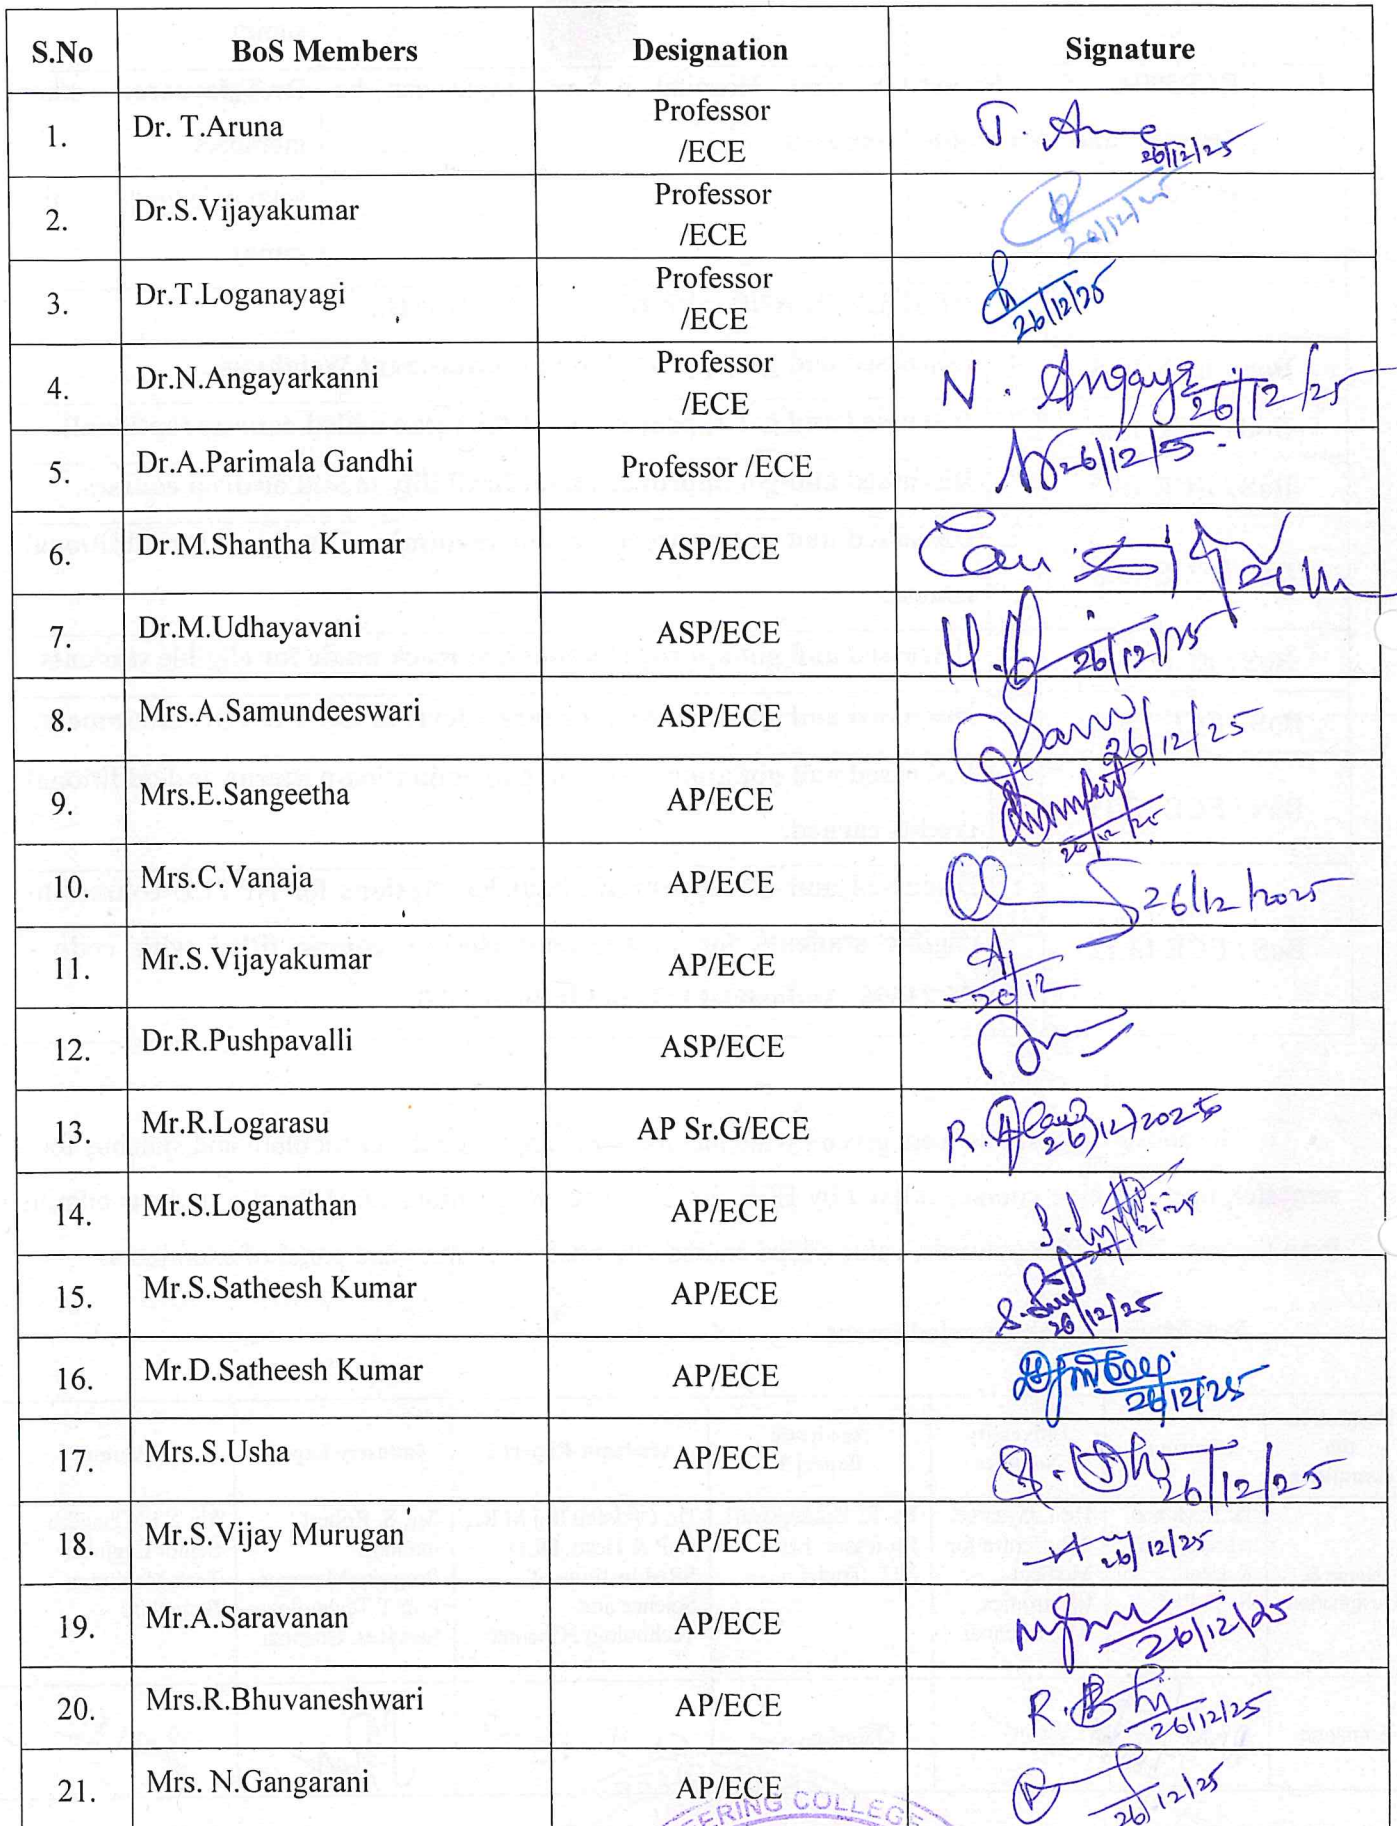 S.No BoS Members Designation Signature
1. Dr. T.Aruna Professor
/ECE T. 26/12/25
2. Dr.S.Vijayakumar Professor
/ECE 26/12/25
3. Dr.T.Loganayagi Professor
/ECE 26/12/25
4. Dr.N.Angayarkanni Professor
/ECE N. Angay 26/12/25
5. Dr.A.Parimala Gandhi Professor /ECE 26/12/25
6. Dr.M.Shantha Kumar ASP/ECE
7. Dr.M.Udhayavani ASP/ECE 26/12/25
8. Mrs.A.Samundeeswari ASP/ECE 26/12/25
9. Mrs.E.Sangeetha AP/ECE 26/12/25
10. Mrs.C.Vanaja AP/ECE 26/12/2025
11. Mr.S.Vijayakumar AP/ECE
12. Dr.R.Pushpavalli ASP/ECE
13. Mr.R.Logarasu AP Sr.G/ECE R. 26/12/2025
14. Mr.S.Loganathan AP/ECE
15. Mr.S.Satheesh Kumar AP/ECE S. 26/12/25
16. Mr.D.Satheesh Kumar AP/ECE 26/12/25
17. Mrs.S.Usha AP/ECE S. 26/12/25
18. Mr.S.Vijay Murugan AP/ECE 26/12/25
19. Mr.A.Saravanan AP/ECE 26/12/25
20. Mrs.R.Bhuvaneshwari AP/ECE R. 26/12/25
21. Mrs. N.Gangarani AP/ECE 26/12/25
ERING COLLEGE